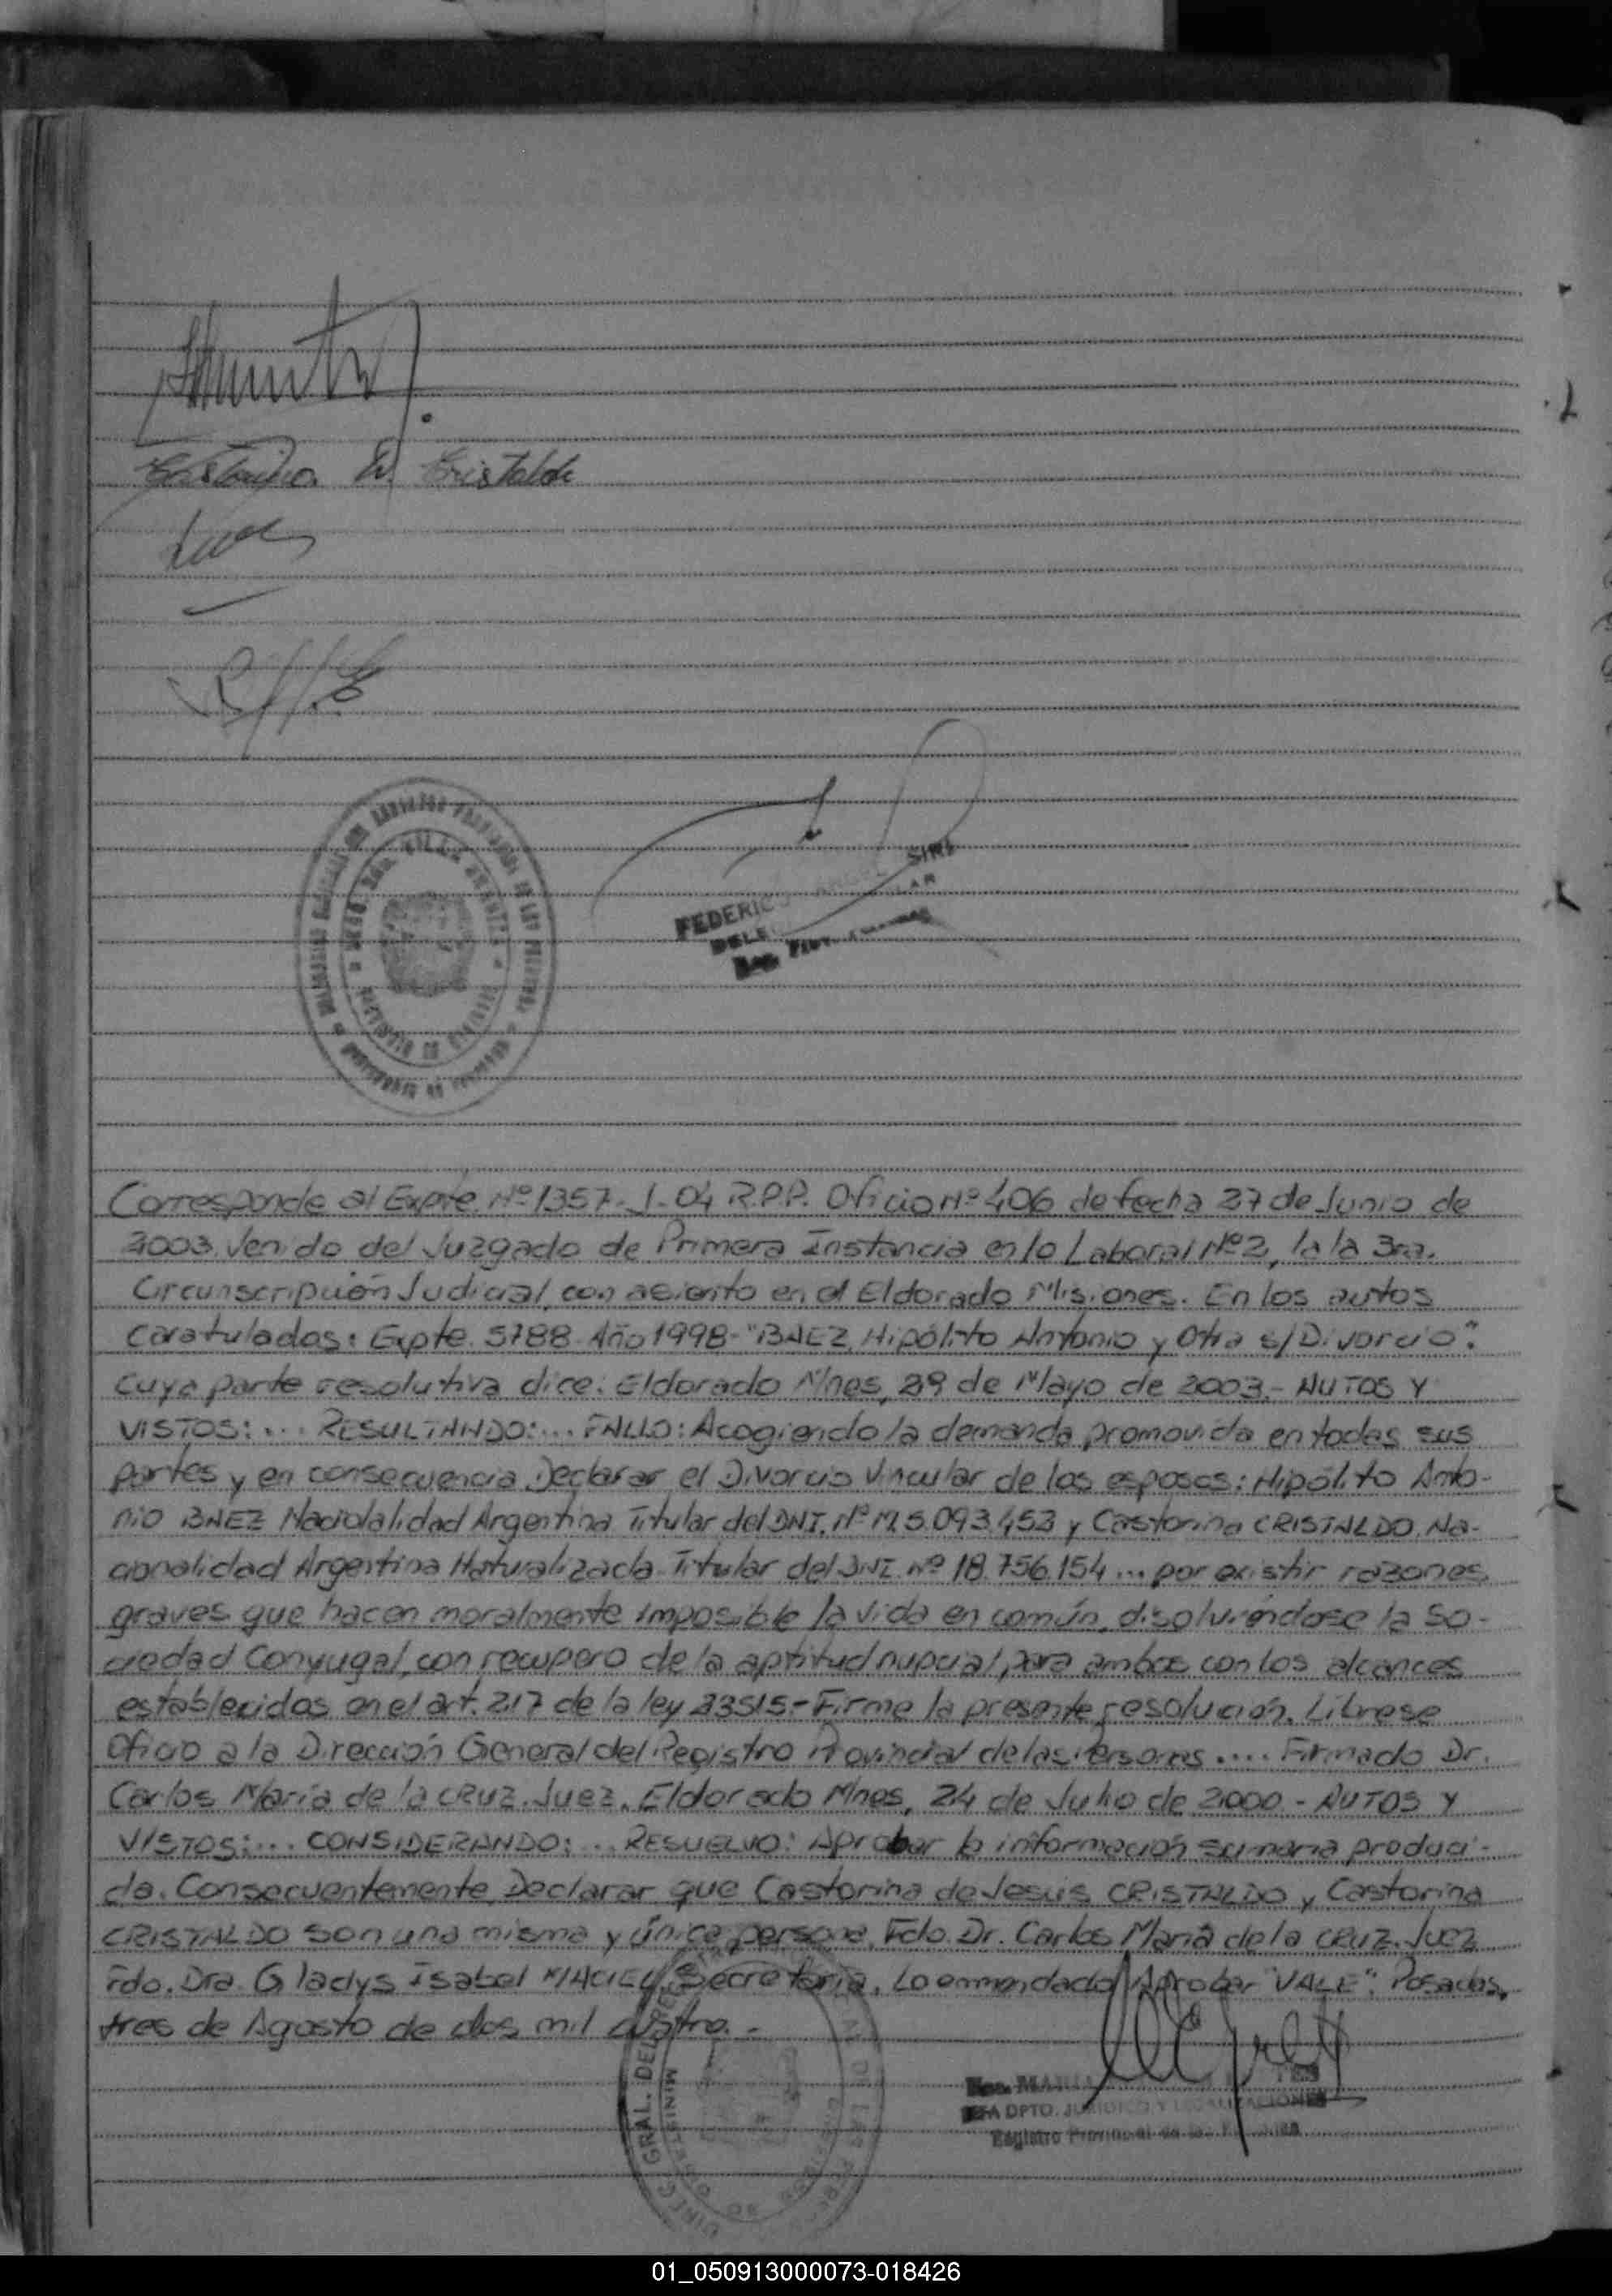 Castorina D. Cristaldo
FEDERICO
Corresponde al Expte. Nº 1357-J-04 R.P.P. Oficio Nº 406 de fecha 27 de Junio de
2003. Venido del Juzgado de Primera Instancia en lo Laboral Nº 2, la la 3ra.
Circunscripción Judicial, con asiento en el Eldorado Misiones. En los autos
caratulados: Expte. 5788 Año 1998 - "BAEZ, Hipólito Antonio y Otra s/ Divorcio".
Cuya parte resolutiva dice: Eldorado Mnes, 29 de Mayo de 2003.- AUTOS Y
VISTOS: ... RESULTANDO: ... FALLO: Acogiendo la demanda promovida en todas sus
partes y en consecuencia Declarar el Divorcio Vincular de los esposos: Hipólito Anto-
nio BAEZ Nacidalidad Argentina Titular del DNI. Nº M.5.093.453 y Castorina CRISTALDO, Na-
cionalidad Argentina Naturalizada Titular del DNI Nº 18.756.154 ... por existir razones
graves que hacen moralmente imposible la vida en común, disolviéndose la So-
ciedad Conyugal, con recupero de la aptitud nupcial, para ambos con los alcances
establecidos en el art. 217 de la ley 23515.- Firme la presente resolución. Líbrese
Oficio a la Dirección General del Registro Provincial de las Personas .... Firmado Dr.
Carlos María de la CRUZ. Juez. Eldorado Mnes, 24 de Julio de 2000 - AUTOS Y
VISTOS: ... CONSIDERANDO: ... RESUELVO: Aprobar la información sumaria produci-
da. Consecuentemente, Declarar que Castorina de Jesús CRISTALDO y Castorina
CRISTALDO son una misma y única persona. Fdo. Dr. Carlos María de la CRUZ. Juez
Fdo. Dra. Gladys Isabel MACIEL, Secretaria. Lo enmendado Aprobar "VALE". Posadas,
tres de Agosto de dos mil cuatro.-
DPTO. JURIDICO Y LEGALIZACIONES
Registro Provincial de las
01_050913000073-018426